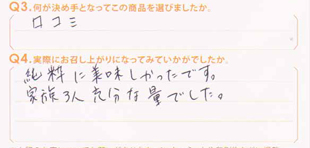 Q3.何が決め手となってこの商品を選びましたか。
口コミ
Q4.実際にお召し上がりになってみていかがでしたか。
純粋に美味しかったです。
家族3人充分な量でした。